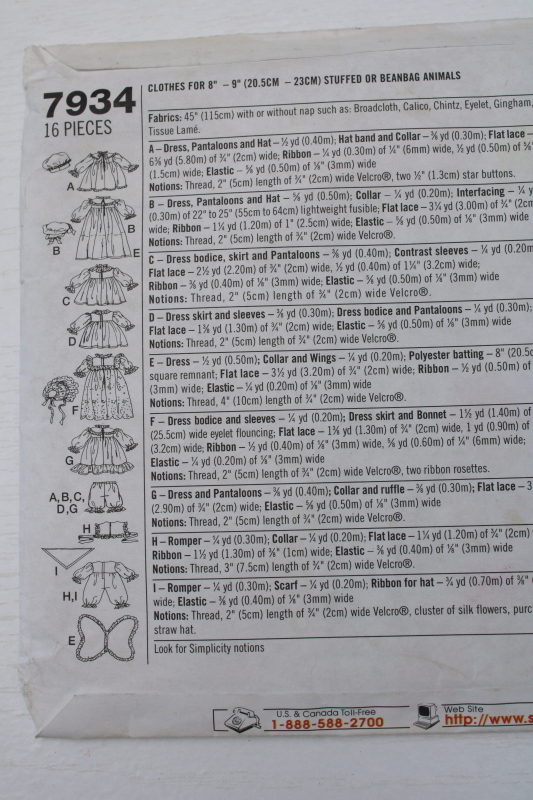 7934
16 PIECES
CLOTHES FOR 8" – 9" (20.5CM – 23CM) STUFFED OR BEANBAG ANIMALS
Fabrics: 45" (115cm) with or without nap such as: Broadcloth, Calico, Chintz, Eyelet, Gingham,
Tissue Lamé.
A – Dress, Pantaloons and Hat – ½ yd (0.40m); Hat band and Collar – ⅜ yd (0.30m); Flat lace –
6⅜ yd (5.80m) of ¾" (2cm) wide; Ribbon – ¼ yd (0.30m) of ¼" (6mm) wide, ½ yd (0.50m) of ⅝"
(1.5cm) wide; Elastic – ⅝ yd (0.50m) of ⅛" (3mm) wide
Notions: Thread, 2" (5cm) length of ¾" (2cm) wide Velcro®, two ½" (1.3cm) star buttons.
B – Dress, Pantaloons and Hat – ⅝ yd (0.50m); Collar – ¼ yd (0.20m); Interfacing – ¼ y
(0.30m) of 22" to 25" (55cm to 64cm) lightweight fusible; Flat lace – 3¼ yd (3.00m) of ¾" (2cm
wide; Ribbon – 1¼ yd (1.20m) of 1" (2.5cm) wide; Elastic – ⅝ yd (0.50m) of ⅛" (3mm) wide
Notions: Thread, 2" (5cm) length of ¾" (2cm) wide Velcro®.
C – Dress bodice, skirt and Pantaloons – ⅜ yd (0.40m); Contrast sleeves – ¼ yd (0.20m
Flat lace – 2½ yd (2.20m) of ¾" (2cm) wide, ½ yd (0.40m) of 1¼" (3.2cm) wide;
Ribbon – ⅜ yd (0.40m) of ⅛" (3mm) wide; Elastic – ⅝ yd (0.50m) of ⅛" (3mm) wide
Notions: Thread, 2" (5cm) length of ¾" (2cm) wide Velcro®.
D – Dress skirt and sleeves – ⅜ yd (0.30m); Dress bodice and Pantaloons – ¼ yd (0.30m);
Flat lace – 1⅜ yd (1.30m) of ¾" (2cm) wide; Elastic – ⅝ yd (0.50m) of ⅛" (3mm) wide
Notions: Thread, 2" (5cm) length of ¾" (2cm) wide Velcro®.
E – Dress – ½ yd (0.50m); Collar and Wings – ¼ yd (0.20m); Polyester batting – 8" (20.5c
square remnant; Flat lace – 3½ yd (3.20m) of ¾" (2cm) wide; Ribbon – ½ yd (0.50m) of
(3mm) wide; Elastic – ¼ yd (0.20m) of ⅛" (3mm) wide
Notions: Thread, 4" (10cm) length of ¾" (2cm) wide Velcro®.
F – Dress bodice and sleeves – ¼ yd (0.20m); Dress skirt and Bonnet – 1½ yd (1.40m) of
(25.5cm) wide eyelet flouncing; Flat lace – 1⅜ yd (1.30m) of ¾" (2cm) wide, 1 yd (0.90m) of
(3.2cm) wide; Ribbon – ½ yd (0.40m) of ⅛" (3mm) wide, ⅝ yd (0.60m) of ¼" (6mm) wide;
Elastic – ¼ yd (0.20m) of ⅛" (3mm) wide
Notions: Thread, 2" (5cm) length of ¾" (2cm) wide Velcro®, two ribbon rosettes.
G – Dress and Pantaloons – ⅜ yd (0.40m); Collar and ruffle – ⅜ yd (0.30m); Flat lace – 3
(2.90m) of ¾" (2cm) wide; Elastic – ⅝ yd (0.50m) of ⅛" (3mm) wide
Notions: Thread, 2" (5cm) length of ¾" (2cm) wide Velcro®.
H – Romper – ¼ yd (0.30m); Collar – ¼ yd (0.20m); Flat lace – 1¼ yd (1.20m) of ¾" (2cm)
Ribbon – 1½ yd (1.30m) of ⅜" (1cm) wide; Elastic – ⅜ yd (0.40m) of ⅛" (3mm) wide
Notions: Thread, 3" (7.5cm) length of ¾" (2cm) wide Velcro®.
I – Romper – ¼ yd (0.30m); Scarf – ¼ yd (0.20m); Ribbon for hat – ¾ yd (0.70m) of ⅜"
wide; Elastic – ⅜ yd (0.40m) of ⅛" (3mm) wide
Notions: Thread, 2" (5cm) length of ¾" (2cm) wide Velcro®, cluster of silk flowers, purc
straw hat.
Look for Simplicity notions
A
B
B
E
C
D
F
G
A,B,C,
D,G
H
I
H,I
E
U.S. & Canada Toll-Free
1-888-588-2700
Web Site
http://www.s